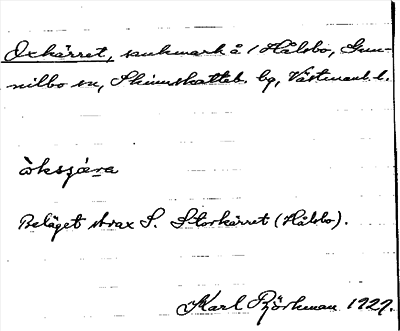 Oxkärret, sankmark å / Hålsbo, Gun-
nilbo sn, Skinnskatteb. hg, Västmanl. l.
òksʒæra
Beläget strax S. Storkärret (Hålsbo).
Karl Björkman 1929.